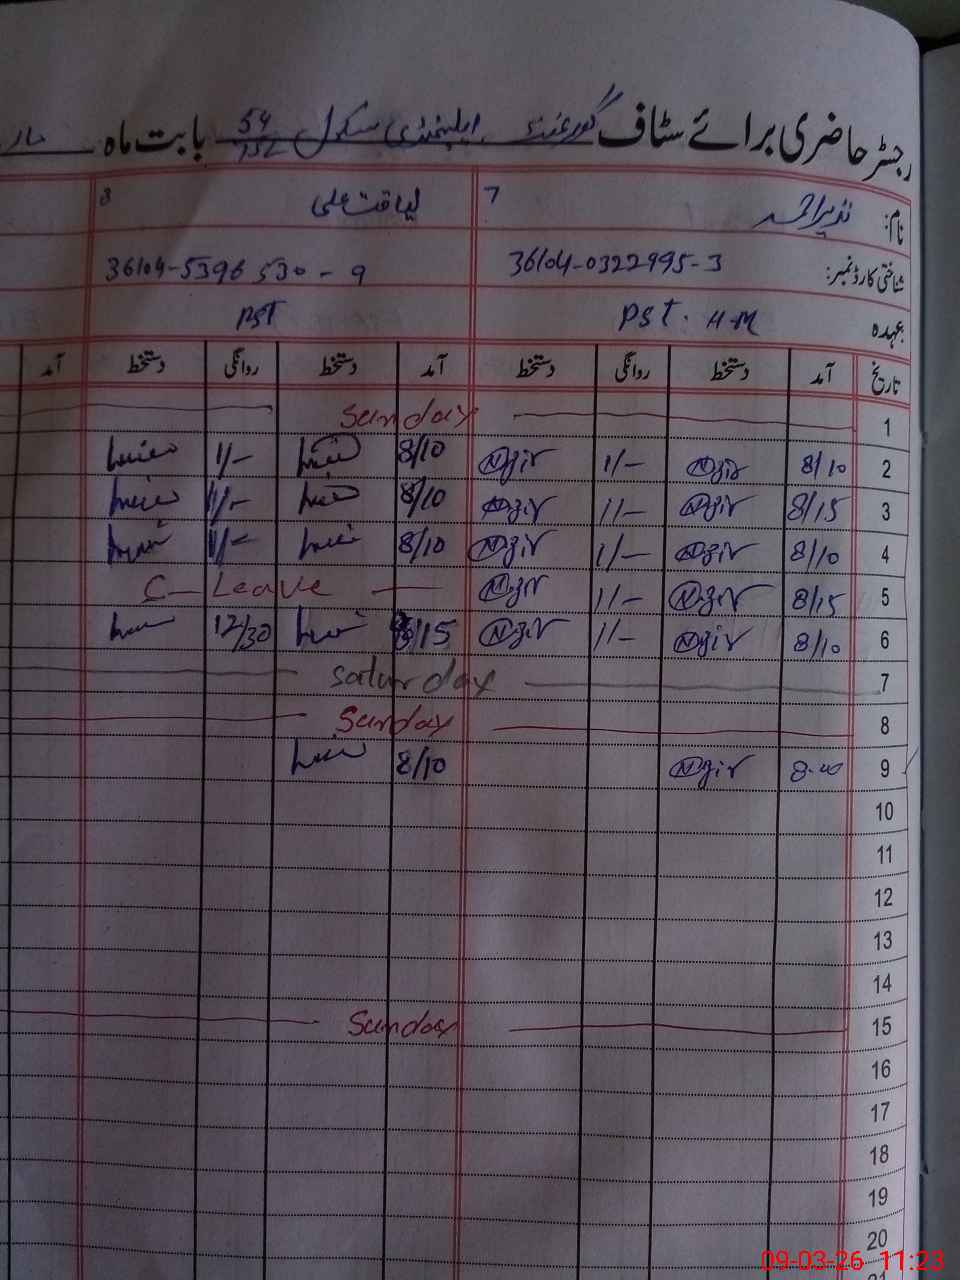 رجسٹر حاضری برائے سٹاف گورنمنٹ ایلیمنٹری سکول 54/15L بابت ماہ
نام: نذیر احمد 7 لیاقت علی 8
شناختی کارڈ نمبر: 36104-0322995-3 36104-5396530-9
عہدہ PST. H-M PST
تاریخ آمد دستخط روانگی دستخط آمد دستخط روانگی دستخط آمد
1 Sunday
2 8/10 Nzir 1/- Nzir 8/10 1/-
3 8/15 Nzir 1/- Nzir 8/10 1/-
4 8/10 Nzir 1/- Nzir 8/10 1/-
5 8/15 Nzir 1/- Nzir C- Leave
6 8/10 Nzir 1/- Nzir 8/15 12/30
7 Saturday
8 Sunday
9 8-00 Nzir 8/10
10
11
12
13
14
15 Sunday
16
17
18
19
20
09-03-26 11:23